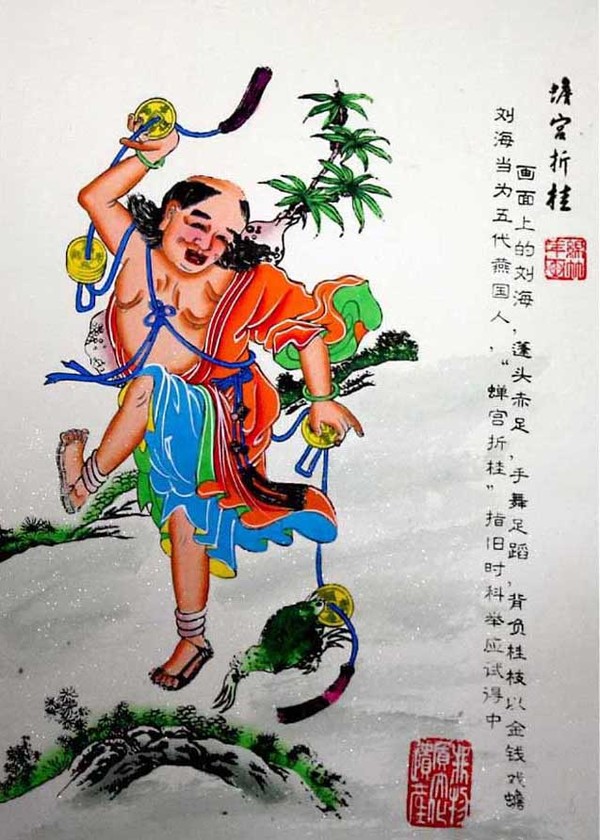 蟾宫折桂
画面上的刘海,蓬头赤足,手舞足蹈,背负桂枝以金钱戏蟾
刘海当为五代燕国人,“蝉宫折桂”指旧时科举应试得中
非物
質文化
遺產